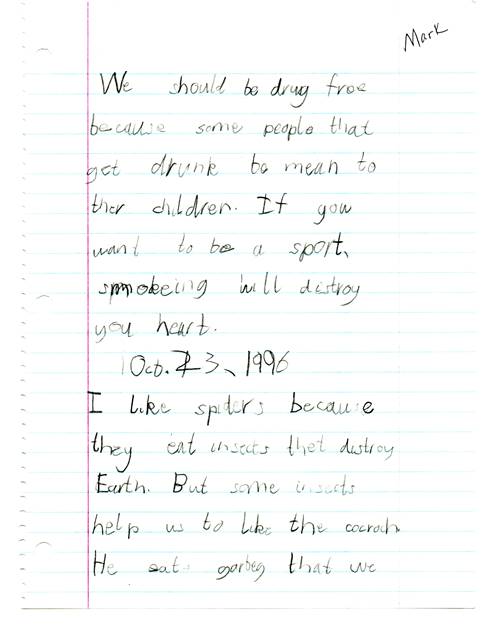 Mark
We should be drug free
because some people that
get drunk be mean to
ther children. If you
want to be a sport,
smokeing will distroy
you heart.
Oct. 23, 1996
I like spiders because
they eat insects thet distroy
Earth. But some insects
help us to like the cocroch
He eats garbeg that we